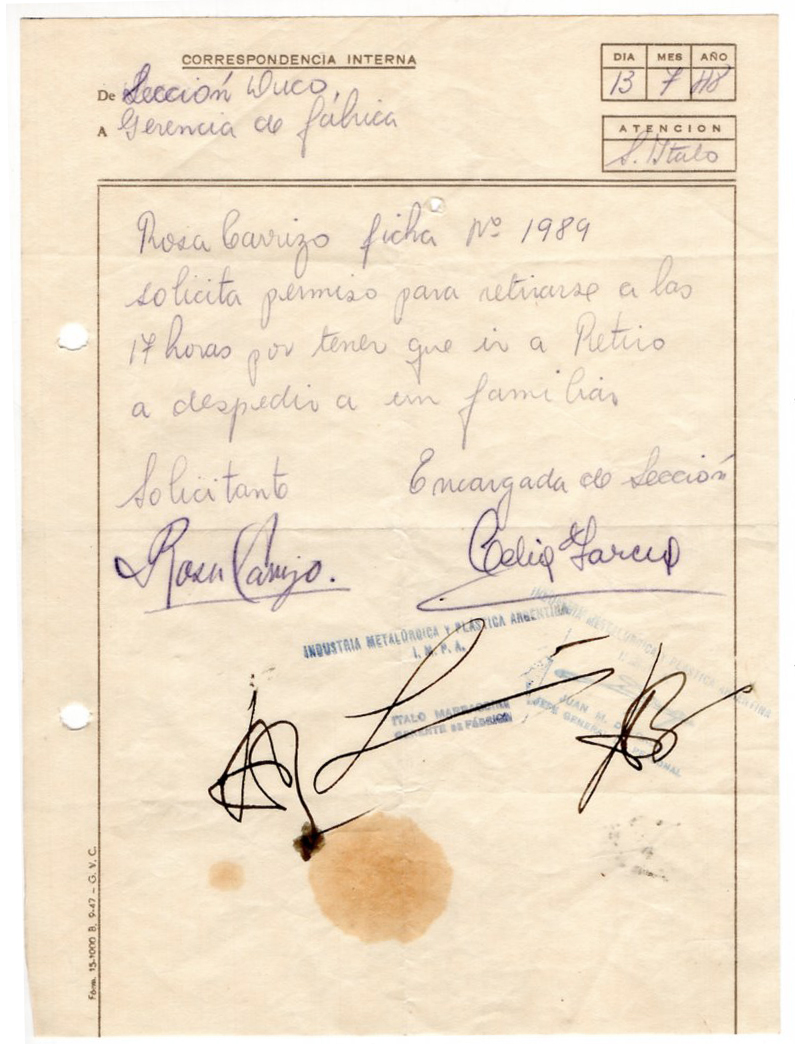 CORRESPONDENCIA INTERNA
De Sección Duco,
A Gerencia de fábrica
DIA MES AÑO
13 7 48
ATENCION
S. Italo
Rosa Carrizo ficha Nº 1989
solicita permiso para retirarse a las
17 horas por tener que ir a Retiro
a despedir a un familiar
Solicitante Encargada de Sección
Rosa Carrizo. Celia García
INDUSTRIA METALÚRGICA Y PLÁSTICA ARGENTINA
I. M. P. A.
INDUSTRIA METALÚRGICA Y PLÁSTICA ARGENTINA
ITALO
GERENTE DE FÁBRICA
JUAN M.
JEFE GENERAL DE PERSONAL
Fórm. 15-1000 B. 9-47 - G. V. C.